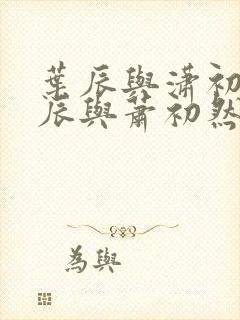 葉辰與瀟初
辰與蕭初然
為與